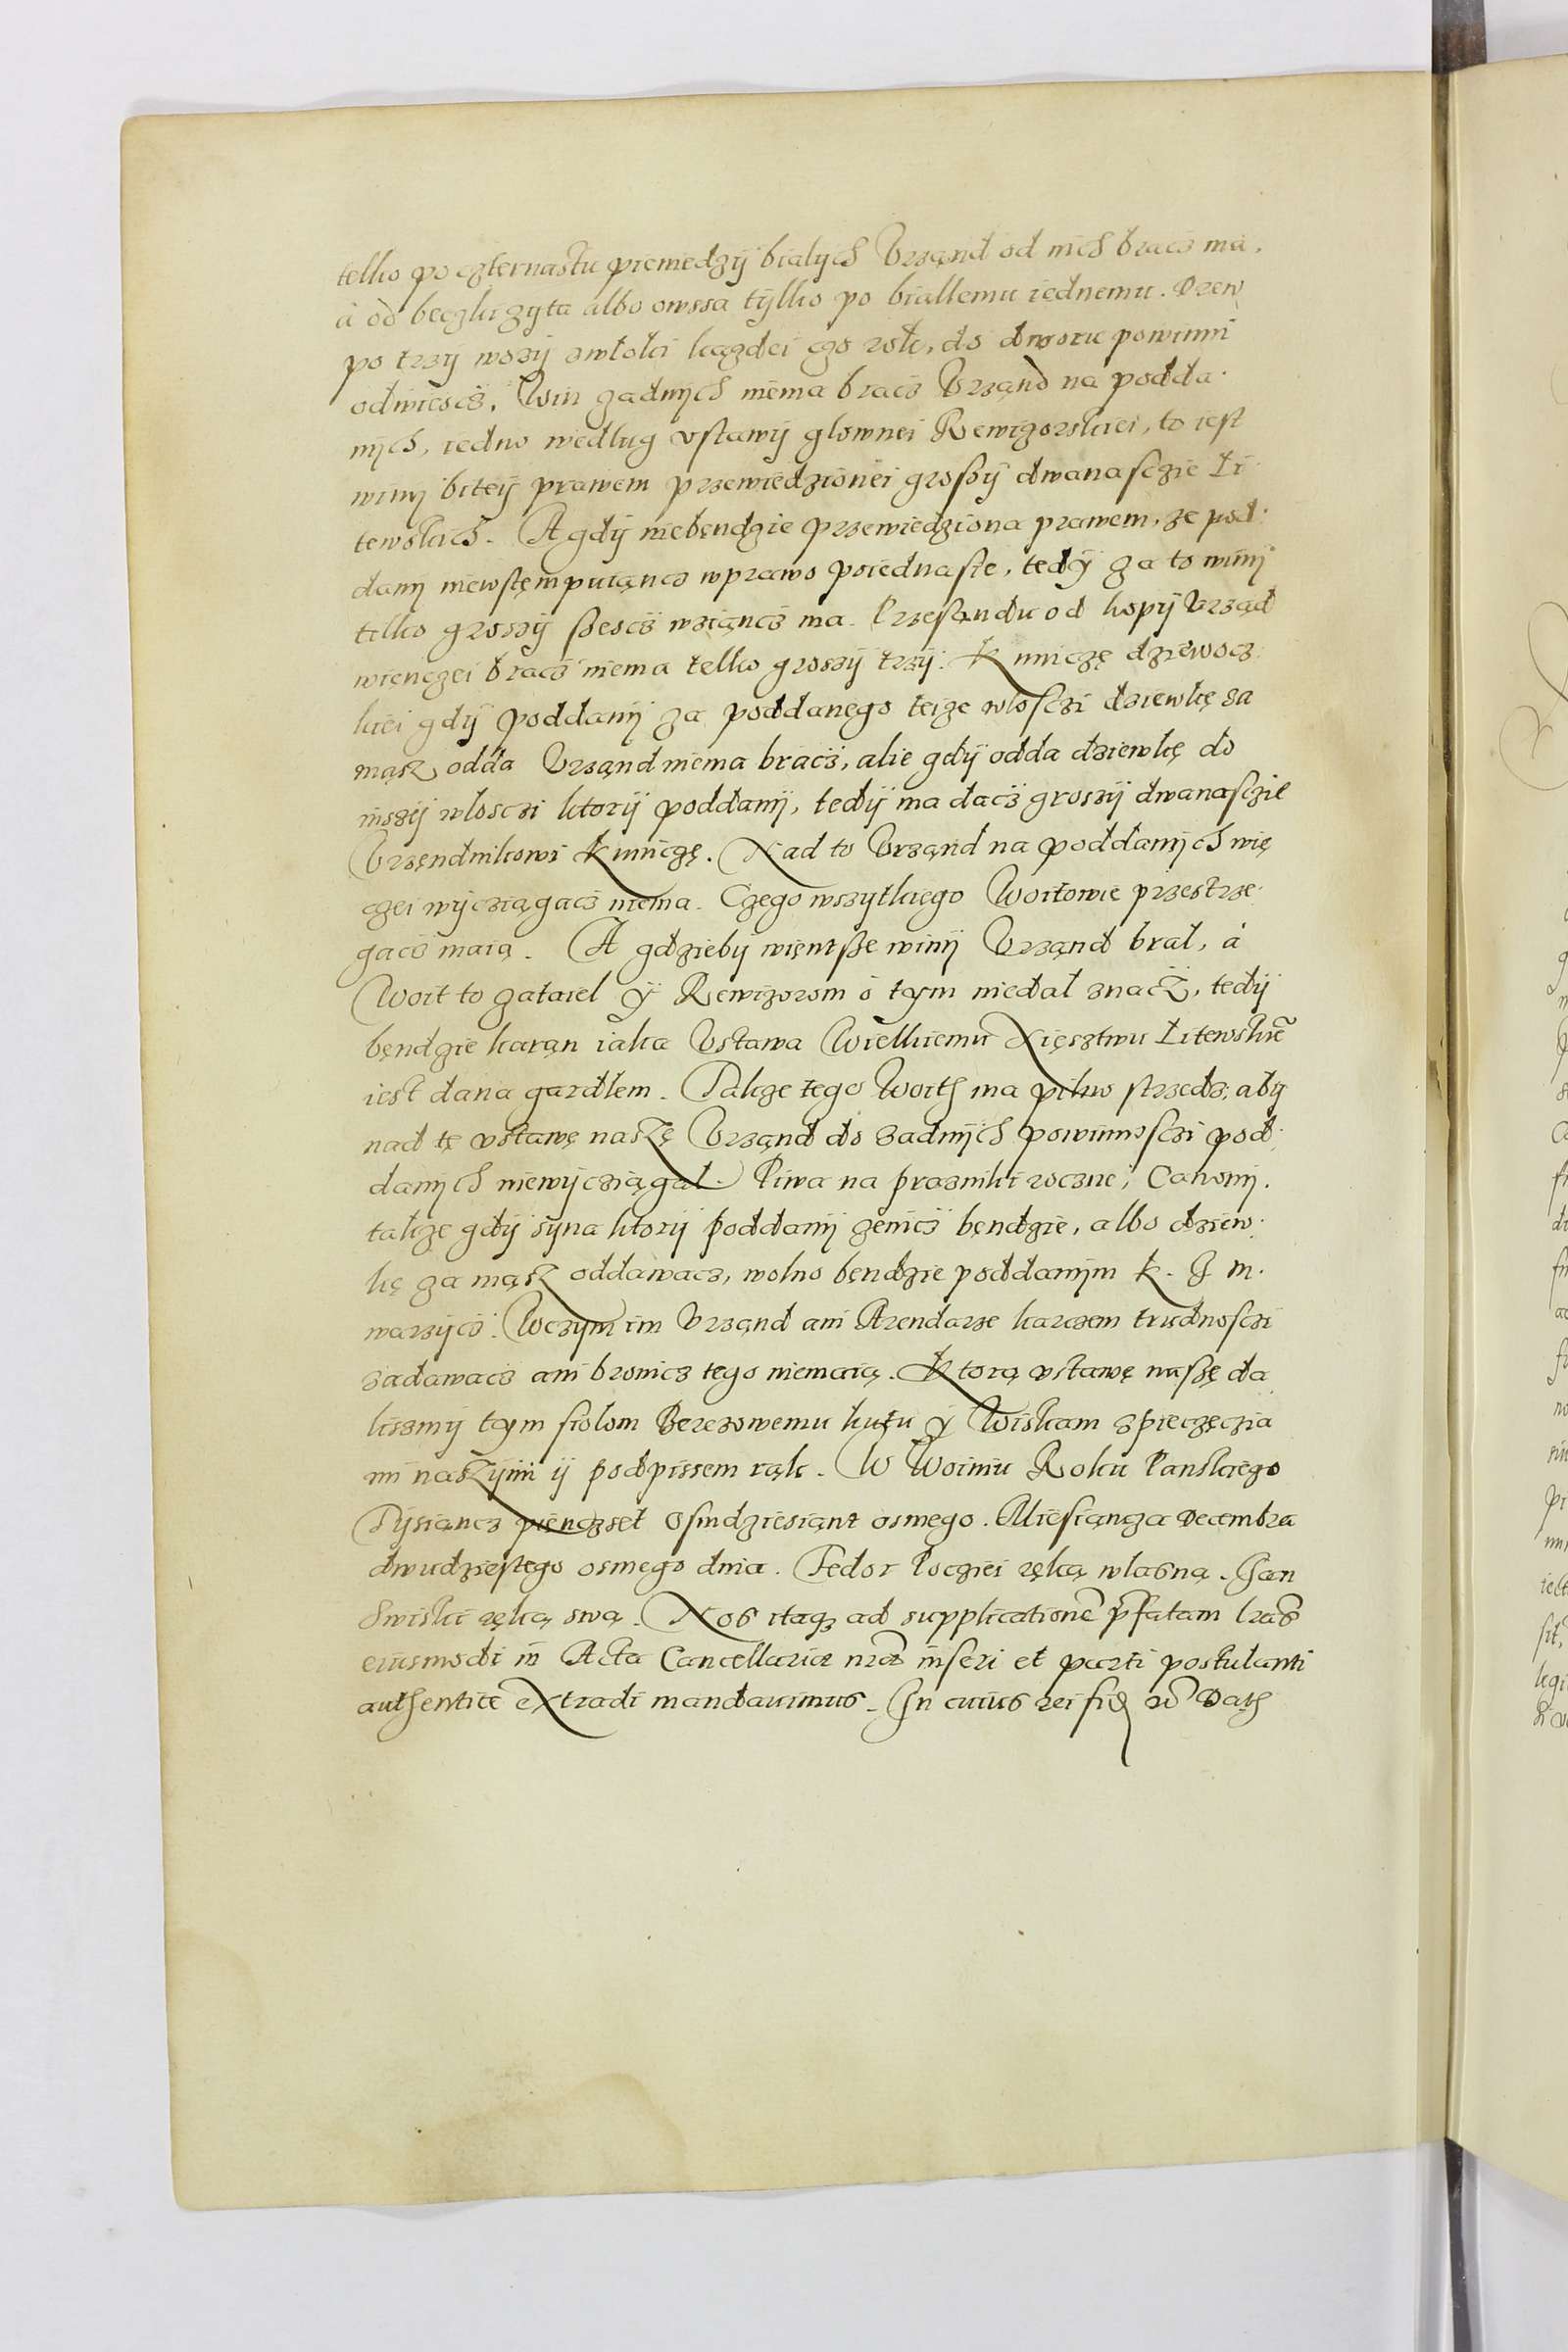 telko po czternastu pieniedzÿ bialÿch Vrząnd od nich bracz ma.
á od beczki zyta albo owssa tÿlko po biallemu iednemu. Drew
po trzy wozÿ zwłoki kazdei czo rok, do dworu powinni
odwiescz. Win zadnÿch niema bracz Vrząnd na podda.
nÿch, iedno wedlug vstawÿ glownei Rewizorskiei, to iest
winÿ biteÿ prawem przewiedzionei grossÿ dwanasczie Li
tewskich. A gdÿ niebęndzie przewiedziona prawem, ze pod.
danÿ niewstęmpuiąncz wprawo poiednasie, tedÿ za to winÿ
telko groszÿ szescz wziąncz ma. Przesąndu od kopÿ Vrząd
więnczei bracz niema telko groszÿ trzÿ. Kuniczę dziewocz
kiei gdÿ poddanÿ za poddanego teize wlosczi dziewkę za
mąsz odda Vrząnd niema bracz, alie gdÿ odda dziewkę do
inszeÿ wlosczi ktorÿ poddanÿ, tedÿ ma dacz groszÿ dwanasczie
Vrzęndnikowi Kuniczę. Nad to Vrząnd na poddanÿch wię
czei wÿcziągacz niema. Czego wszytkiego Woitowie przestrze
gacz maią. A gdziebÿ więntsze winÿ Vrząnd bral, á
Woit to zataiel ÿ Rewizorom o tym niedal znacz, tedÿ
bęndzie karąn iaka Vstawa Wielkiemu Xięsztwu Litewskie
iest dana gardlem. Takze tego Woith ma pilno strzedz, abÿ
nad tę vstawę naszę Vrząnd do zadnÿch powinnosczi pod.
danÿch niewÿcziągal. Piwa na prazniki roczne, Canonÿ.
takze gdÿ sÿna ktorÿ poddanÿ zenicz bęndzie, albo dziew.
kę za mąsz oddawacz, wolno bęndzie poddanÿm K. J. M.
warzÿcz. Wczÿm im Vrząnd ani Arendarze karczem trudnosczi
zadawacz ani bronicz tego niemaią. Ktorą vstawę naszę da
liszmÿ tym siolom Berezowemu kutu ÿ Wiskam zpieczęczia
mi naszÿmi ÿ podpissem rąk. W Woiniu Roku Panskiego
Tÿsiąncz pięnczset Osmdziesiąnt osmego. Miesiąncza Decembra
dwudziestego osmego dnia. Fedor Pocziei ręką wlasną. Jan
Swiski ręką swą. Nos itaq ad supplicatione pfatam lras
eiusmodi in Acta Cancellariæ nræ inseri et parti postulanti
authentice extradi mandauimus. In cuius rei fid Dath